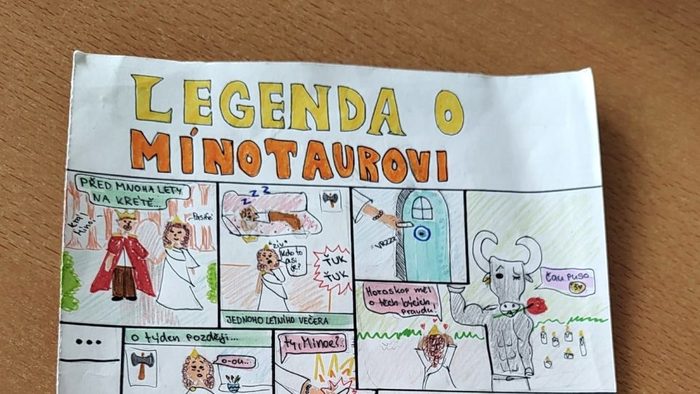 LEGENDA O
MÍNOTAUROVI
PŘED MNOHA LETY
NA KRÉTĚ...
král
Míno.
Pasifé
z z z
JEDNOHO LETNÍHO VEČERA
*zív*
kdo to
asi
je?
ŤUK
ŤUK
VRZZZ
Horoskop měl
o těch býcích
pravdu!
Čau puso
...
o týden později...
o-ou...
ty, Mínoe?